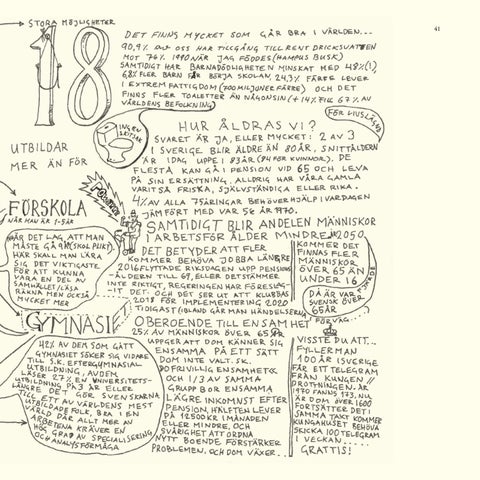 41
STORA MÖJLIGHETER
18
DET FINNS MYCKET SOM GÅR BRA I VÄRLDEN...
90,9% av OSS HAR TILLGÅNG TILL RENT DRICKSVATTEN
MOT 76% 1990 NÄR JAG FÖDDES (HAMPUS BUSK)
SAMTIDIGT HAR BARNADÖDLIGHETEN MINSKAT MED 48% (!),
68% FLER BARN FÅR BÖRJA SKOLAN, 24,3% FÄRRE LEVER
I EXTREM FATTIGDOM (700 MILJONER FÄRRE) OCH DET
FINNS FLER TOALETTER ÄN NÅGONSIN (+14% TILL 67% AV
VÄRLDENS BEFOLKNING)
INGEN SKITSAK
FÖR LIVSLÄNGD
UTBILDAR
MER ÄN FÖR
HUR ÅLDRAS VI?
SVARET ÄR JA, ELLER MYCKET: 2 AV 3
I SVERIGE BLIR ÄLDRE ÄN 80 ÅR, SNITTÅLDERN
ÄR IDAG UPPE I 83 ÅR (84 FÖR KVINNOR). DE
FLESTA KAN GÅ I PENSION VID 65 OCH LEVA
PÅ SIN ERSÄTTNING, ALLDRIG HAR VÅRA GAMLA
VARIT SÅ FRISKA, SJÄLVSTÄNDIGA ELLER RIKA.
4% AV ALLA 75ÅRINGAR BEHÖVER HJÄLP I VARDAGEN
JÄMFÖRT MED VAR 5E ÅR 1970.
FÖRSKOLA
NÄR MAN ÄR 1-5ÅR
ÄR DET LAG ATT MAN
MÅSTE GÅ PÅ (SKOLPLIKT)
HÄR SKALL MAN LÄRA
SIG DET VIKTIGASTE
FÖR ATT KUNNA
VARA EN DEL AV
SAMHÄLLET (LÄSA
RÄKNA MEN OCKSÅ
MYCKET MER
SAMTIDIGT BLIR ANDELEN MÄNNISKOR
I ARBETSFÖR ÅLDER MINDRE
DET BETYDER ATT FLER
KOMMER BEHÖVA JOBBA LÄNGRE
2016 FLYTTADE RIKSDAGEN UPP PENSIONS
ÅLDERN TILL 69, ELLER DET STÄMMER
INTE RIKTIGT, REGERINGEN HAR FÖRESLAG
IT DET. OCH DET SER UT ATT KLUBBAS
2018 FÖR IMPLEMENTERING 2020
TIDIGAST (IBLAND GÅR MAN HÄNDELSERNA
I FÖRVÄG...
2050
KOMMER DET
FINNAS FLER
MÄNNISKOR
ÖVER 65 ÄN
UNDER 16
DÅ ÄR VAR
SVENSK ÖVER
65 ÅR
GYMNASIE
42% AV DEM SOM GÅTT
GYMNASIET SÖKER SIG VIDARE
TILL S.K. EFTERGYMNASIAL
UTBILDNING, AV DEM
LÄSER 27% EN UNIVERSITETS-
UTBILDNING PÅ 3 ÅR ELLER
LÄNGRE DET GÖR SVENSKARNA
TILL ETT AV VÄRLDENS MEST
UTBILDADE FOLK, BRA I EN
VÄRLD DÄR ALLT MER AV
ARBETENA KRÄVER EN
HÖG GRAD AV SPECIALISERING
OCH ANALYSFÖRMÅGA
OBEROENDE TILL ENSAMHET
25% AV MÄNNISKOR ÖVER 65 ÅR
UPPGER ATT DOM KÄNNER SIG
ENSAMMA PÅ ETT SÄTT
DOM INTE VALT. SK.
OFRIVILLIG ENSAMHET
OCH 1/3 AV SAMMA
GRUPP BOR ENSAMMA
LÄGRE INKOMST EFTER
PENSION, HÄLFTEN LEVER
PÅ 12500KR I MÅNADEN
ELLER MINDRE, OCH
SVÅRIGHET ATT ORDNA
NYTT BOENDE FÖRSTÄRKER
PROBLEMEN, OCH DOM VÄXER...
VISSTE DU ATT...
FYLLER MAN
100 ÅR I SVERIGE
FÅR ETT TELEGRAM
FRÅN KUNGEN //
DROTTNINGEN. ÅR
1970 FANNS 173, NU
ÄR DOM ÖVER 1600
FORTSÄTTER DET I
SAMMA TAKT KOMMER
KUNGAHUSET BEHÖVA
SKICKA 100 TELEGRAM
I VECKAN.....
GRATTIS!